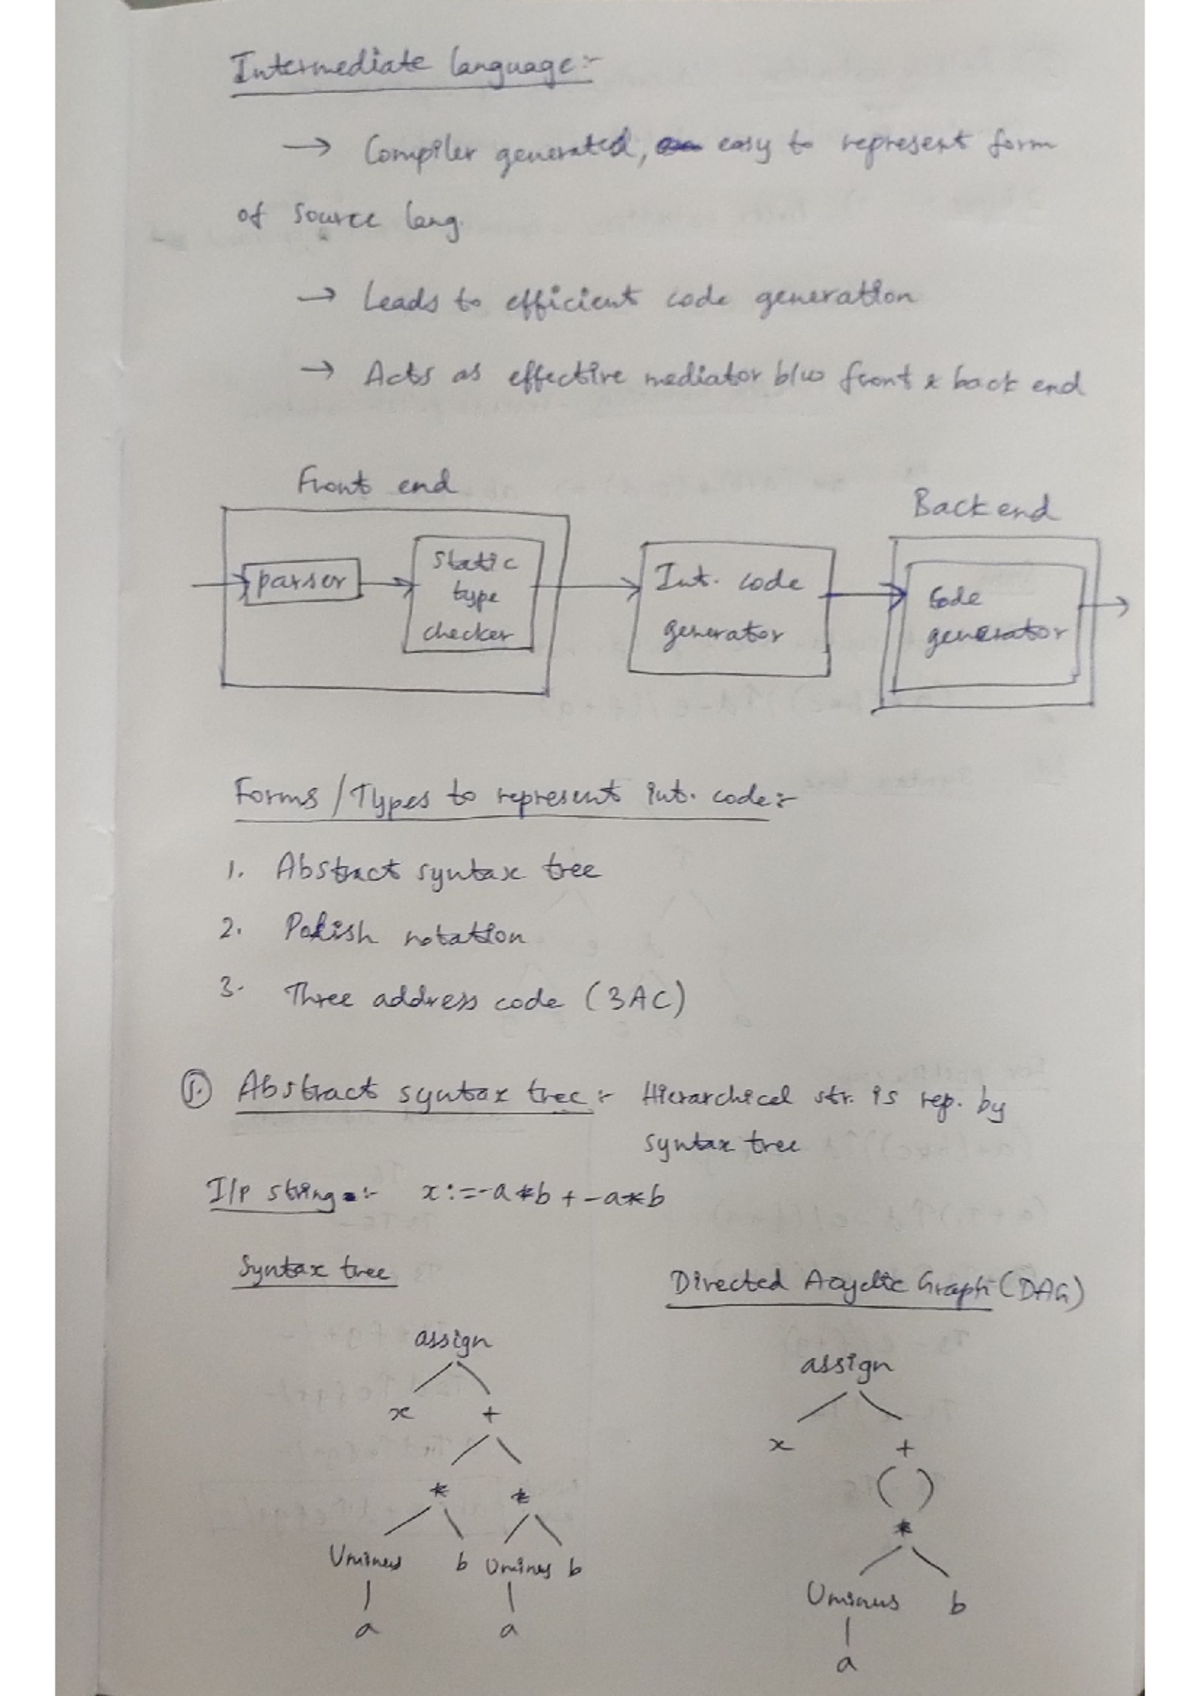 Intermediate language:-
→ Compiler generated, easy to represent form
of source lang.
→ Leads to efficient code generation
→ Acts as effective mediator b/w front & back end
Front end
Back end
parser
Static
type
checker
Int. code
generator
Code
generator
Forms/Types to represent int. code:-
1. Abstract syntax tree
2. Polish notation
3. Three address code (3AC)
1. Abstract syntax tree:- Hierarchical str. is rep. by
syntax tree
I/p string:- x:=-a*b+-a*b
Syntax tree
Directed Acyclic Graph (DAG)
assign
x +
* *
Uminus b Uminus b
a a
assign
x +
*
Uminus b
a